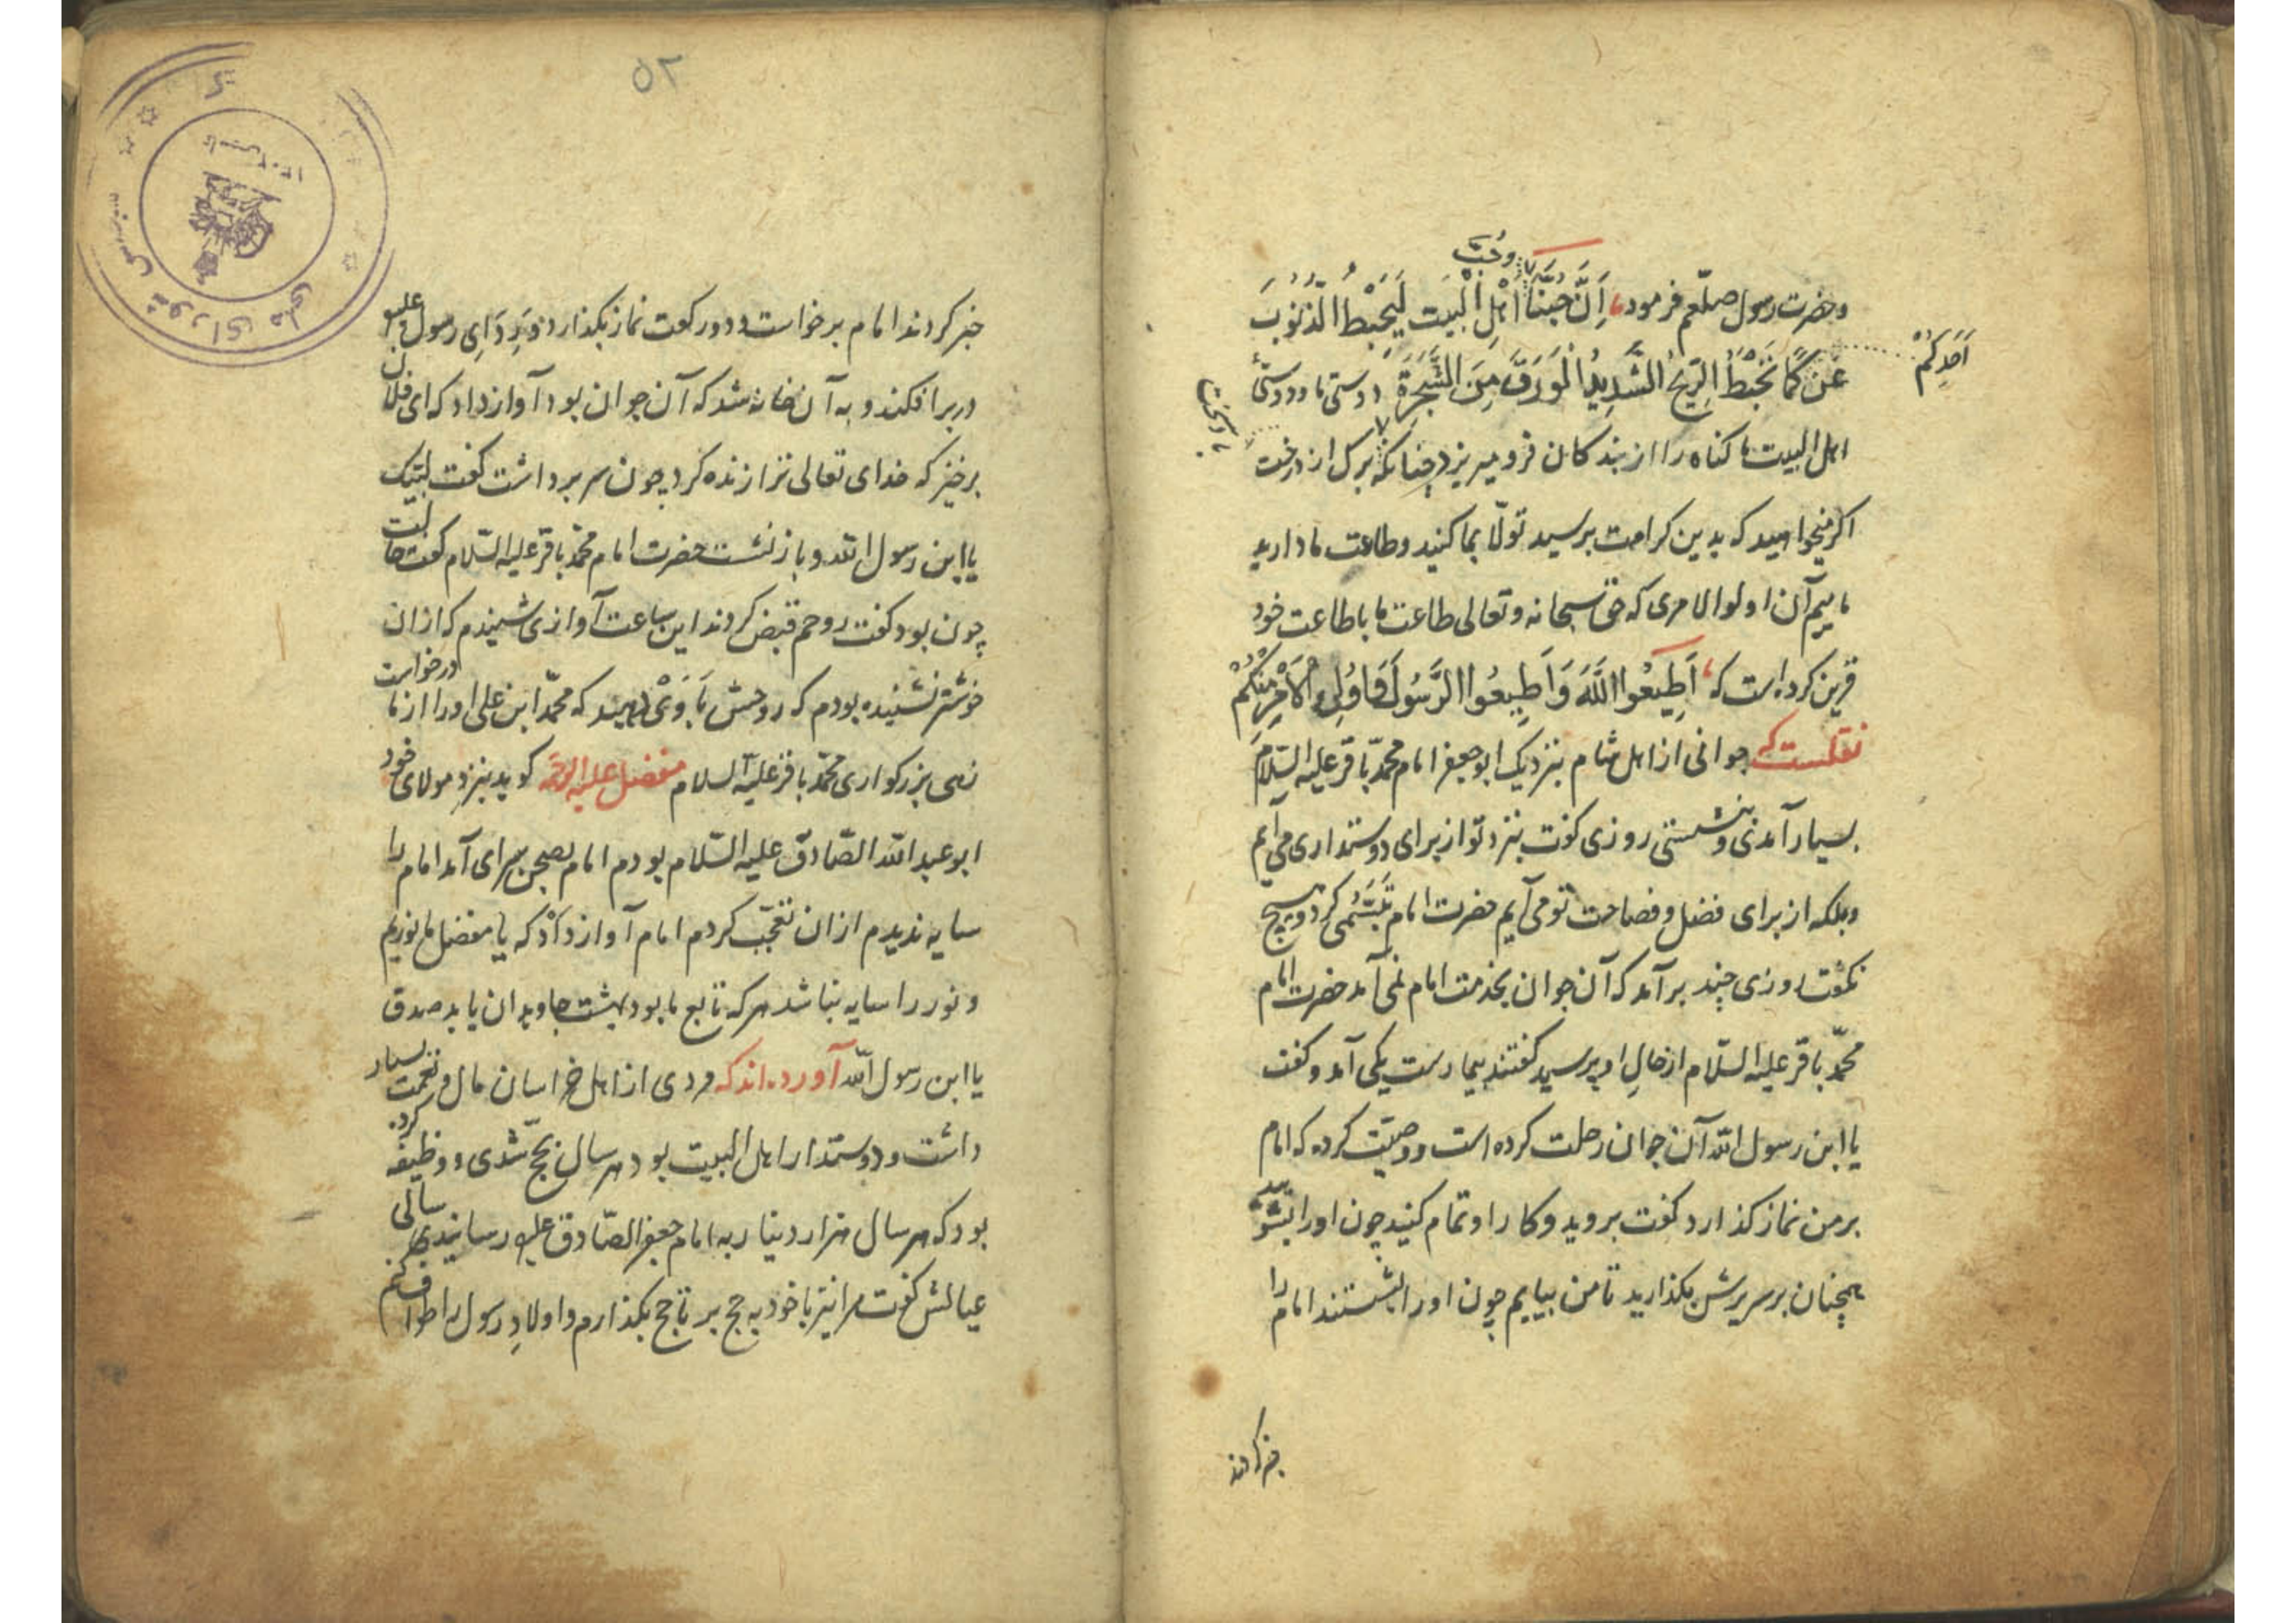 وحب
وحضرت رسول صلعم فرمود، اِنَّ حُبَّنَا اَهْلَ الْبَیت لَیُحْبِطُ الذُّنُوبَ
اَحَدِکُمْ
عَنْ کَمَا تَحْبِطُ الرِّیحُ الشَّدِیدُ الْوَرَقَ مِنَ الشَّجَرَةِ دوستی ما ودوستیٔ
اهل البیت ما کناه را از بندکان فرو میریزد چنانکه برک از درخت
اکر میخواهید که بدین کرامت برسید تولّا بما کنید وطاعت ما دارید
ماییم آن اولوالامری که حق سبحانه وتعالی طاعت ما با طاعت خود
قرین کرده است که، اَطِیعُوا اللَّهَ وَ اَطِیعُوا الرَّسُولَ وَاُولِی الْاَمْرِ مِنْکُمْ
نقلست که جوانی از اهل شام بنزدیک ابوجعفر امام محمّد باقر علیه السّلام
بسیار آمدی و بنشستی روزی کفت بنزد تو از برای دوستداری می آیم
وبلکه از برای فضل و فصاحت تو می آیم حضرت امام تَبَسُّمی کرد و هیچ
نکفت روزی چند برآمد که آن جوان بخدمت امام نمی آمد حضرت امام
محمّد باقر علیه السّلام از حالِ او پرسید کفتند بیمارست یکی آمد و کفت
یا ابن رسول الله آن جوان رحلت کرده است و وصیّت کرده که امام
بر من نماز کذارد کفت بروید و کار او تمام کنید چون او را بشویید
همچنان بر سریرش بکذارید تا من بیایم چون او را بشستند امام را
خبر کردند
۵۲
خبر کردند امام برخواست و دو رکعت نماز بکذارد و بَرِدَایِ رسول علیه
در بر افکند و به آن خانه شد که آن جوان بود آواز داد که ای فلان
برخیز که خدای تعالی ترا زنده کرد چون سر برداشت کفت لبّیک
یا ابن رسول الله و باز نشست حضرت امام محمّد باقر علیه السّلام کفت حالت
چون بود کفت روحم قبض کردند این ساعت آوازی شنیدم که از ان
خوشتر نشنیده بودم که روحش بَاوَیْ دهید که محمّد ابن علی او را از ما درخواست
زهی بزرکواری محمّد باقر علیه السلام مفضل علیه الرحمه کوید بنزدِ مولای خود
ابو عبد الله الصّادق علیه السّلام بودم امام بصحن سرای آمد امام را
سایه ندیدم از ان تعجّب کردم امام آواز داد که یا مفضل ما نوریم
و نور را سایه نباشد هرکه تابع ما بود بهشت جاویدان یابد صدق
یا ابن رسول الله آورده اند که مردی از اهل خراسان مال و نعمت بسیار
داشت و دوستدار اهل البیت بود هر سال بحج شدی و وظیفه کرده
بود که هر سال هزار دینار به امام جعفر الصّادق علیه رسانیدی سالی
عیالش کفت مرا نیز با خود به حج بر تا حج بکذارم و اولادِ رسول را طواف کنم